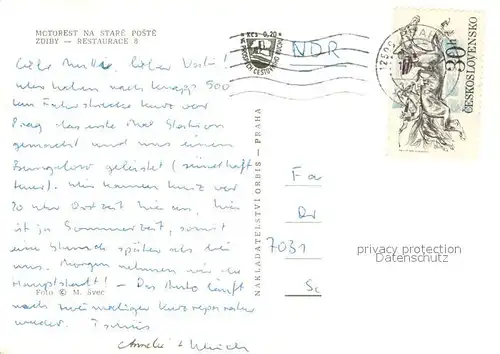 MOTOREST NA STARÉ POŠTĚ
ZDIBY — RESTAURACE 8
Liebe Mutter, lieber Vati!
wir haben nach knapp 500
km Fahrstrecke kurz vor
Prag das erste Mal Station
gemacht und uns einen
Bungalow geleistet (sündhaft
teuer). Wir kamen kurz vor
20 Uhr Ortszeit hier an, hier
ist ja Sommerzeit, somit
eine Stunde später als bei
uns. Morgen nehmen wir die
Hauptstadt! - Das Auto läuft
Foto © M. Švec
nach zweimaliger Kurzreparatur
wieder. Tschüs
Ulrich
NAKLADATELSTVÍ ORBIS — PRAHA
Kčs 0,20
NDR
30
ČESKOSLOVENSKO
Fa
Dr
7031
privacy protection
Datenschutz